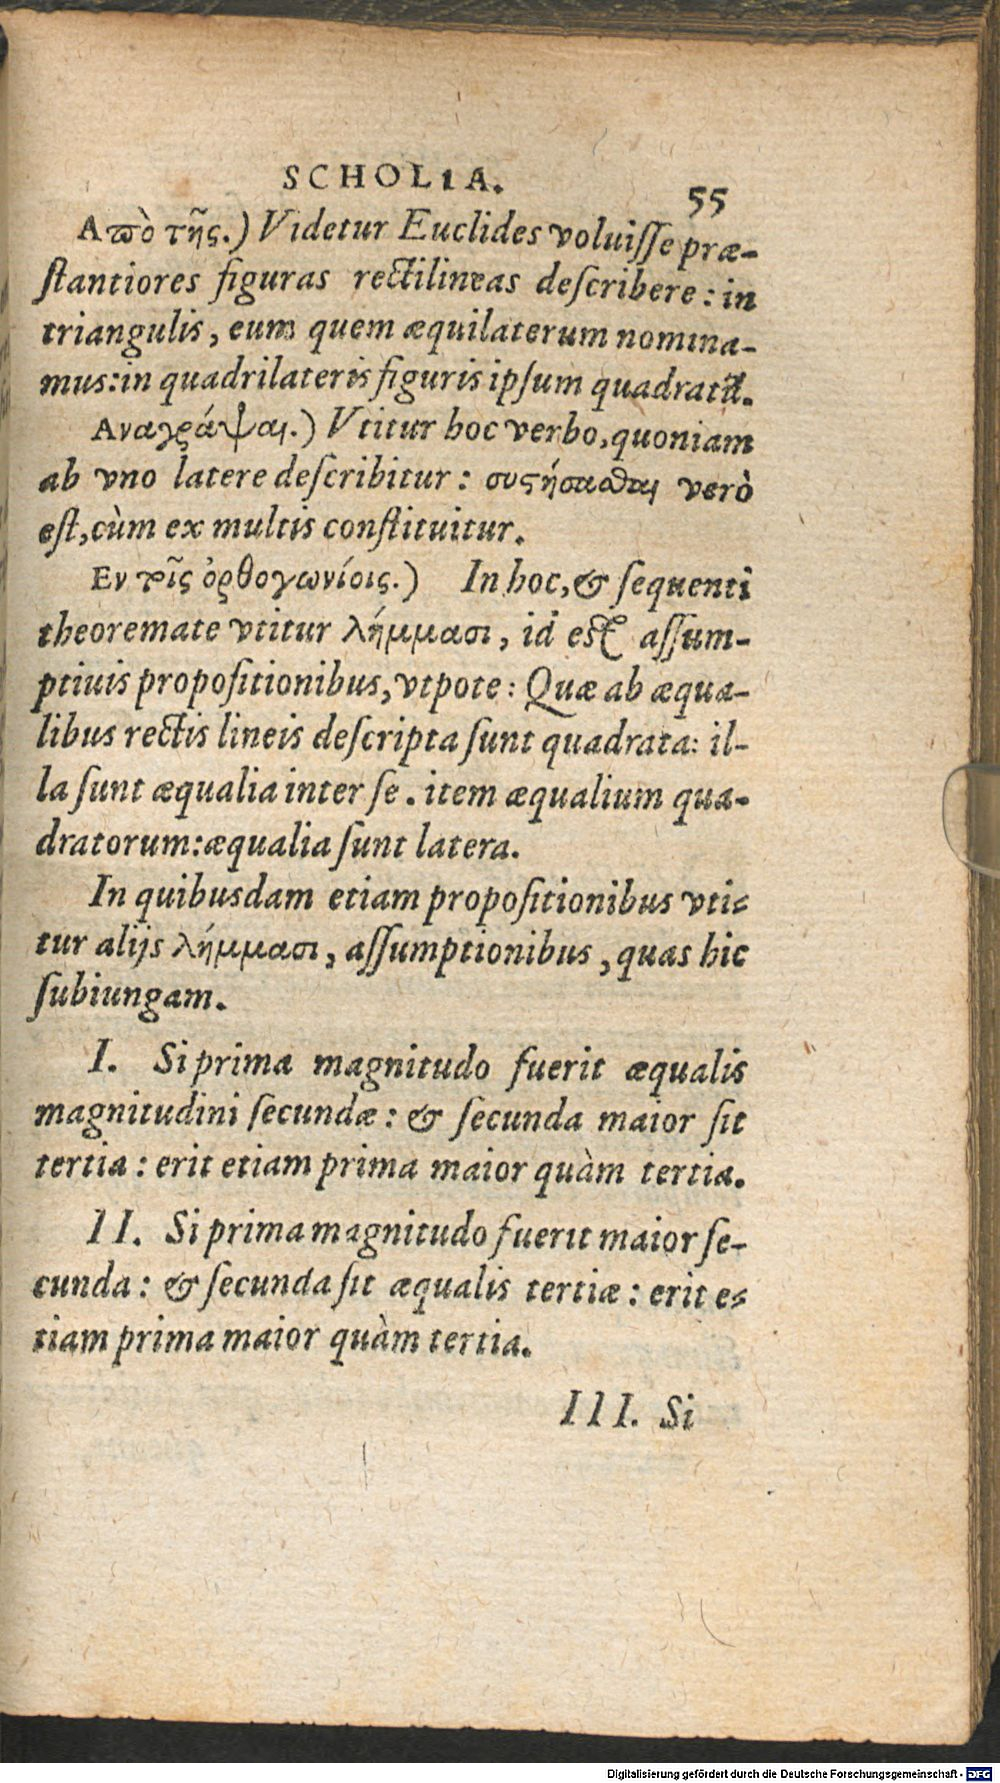 SCHOLIA.
55
Απὸ τῆς.) Videtur Euclides voluiſſe præ-
ſtantiores figuras rectilineas deſcribere: in
triangulis, eum quem æquilaterum nomina-
mus: in quadrilateris figuris ipſum quadratũ.
Αναγράψαι.) Vtitur hoc verbo, quoniam
ab vno latere deſcribitur: συςήσαϑαι verò
eſt, cùm ex multis conſtituitur.
Εν τοῖς ὀρθογωνίοις.) In hoc, & ſequenti
theoremate vtitur λήμμασι, id eſt aſſum-
ptiuis propoſitionibus, vtpote: Quæ ab æqua-
libus rectis lineis deſcripta ſunt quadrata: il-
la ſunt æqualia inter ſe. item æqualium qua-
dratorum: æqualia ſunt latera.
In quibusdam etiam propoſitionibus vti-
tur alijs λήμμασι, aſſumptionibus, quas hic
ſubiungam.
I. Si prima magnitudo fuerit æqualis
magnitudini ſecundæ: & ſecunda maior ſit
tertia: erit etiam prima maior quàm tertia.
II. Si prima magnitudo fuerit maior ſe-
cunda: & ſecunda ſit æqualis tertiæ: erit e-
tiam prima maior quàm tertia.
III. Si
Digitalisierung gefördert durch die Deutsche Forschungsgemeinschaft - DFG